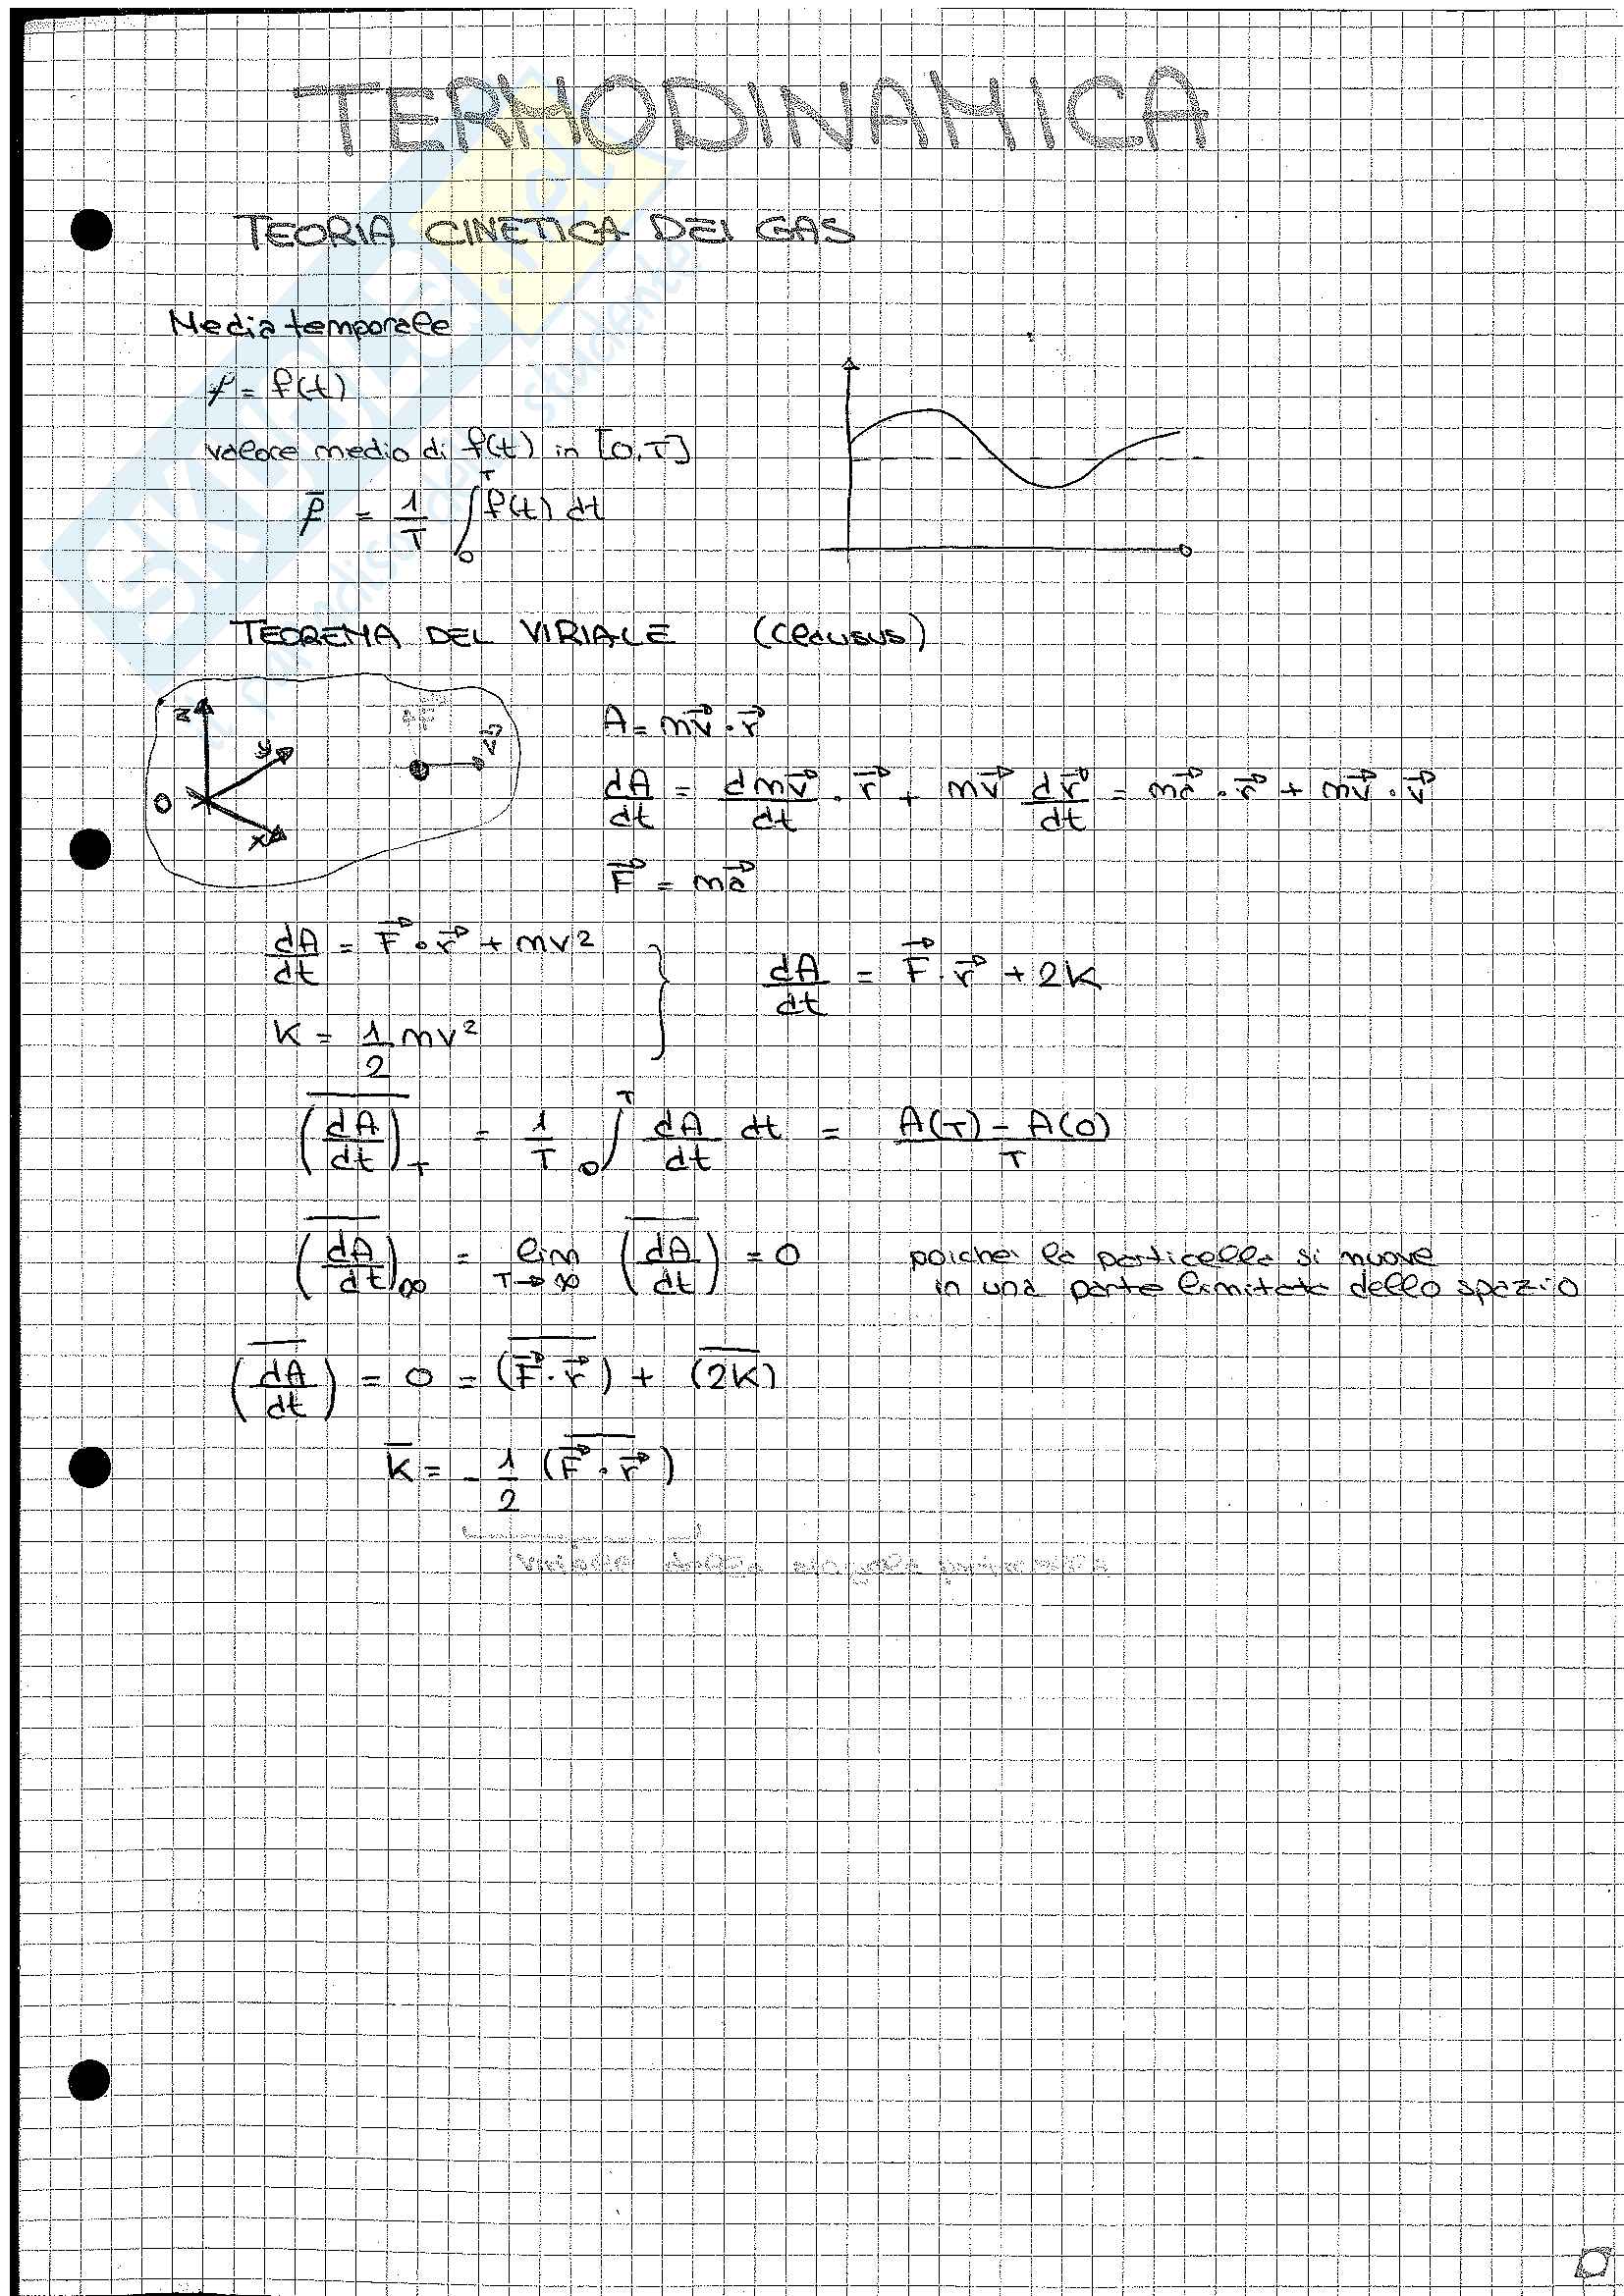 TERMODINAMICA
TEORIA CINETICA DEI GAS
Media temporale
f = f(t)
valore medio di f(t) in [0,T]
f̅ = 1/T ∫₀ᵀ f(t) dt
TEOREMA DEL VIRIALE (Clausius)
z y x O F⃗ v⃗
A = mv⃗ · r⃗
dA/dt = dmv⃗/dt · r⃗ + mv⃗ dr⃗/dt = ma⃗ · r⃗ + mv⃗ · v⃗
F⃗ = ma⃗
dA/dt = F⃗ · r⃗ + mv²
K = 1/2 mv²
} dA/dt = F⃗ · r⃗ + 2K
(dA/dt)‾_T = 1/T ₀∫ᵀ dA/dt dt = (A(T) - A(0))/T
(dA/dt)‾_∞ = lim T→∞ (dA/dt)‾ = 0 poiché la particella si muove
in una parte limitata dello spazio
(dA/dt)‾ = 0 = (F⃗ · r⃗)‾ + (2K)‾
K̅ = - 1/2 (F⃗ · r⃗)‾
viriale della singola particella